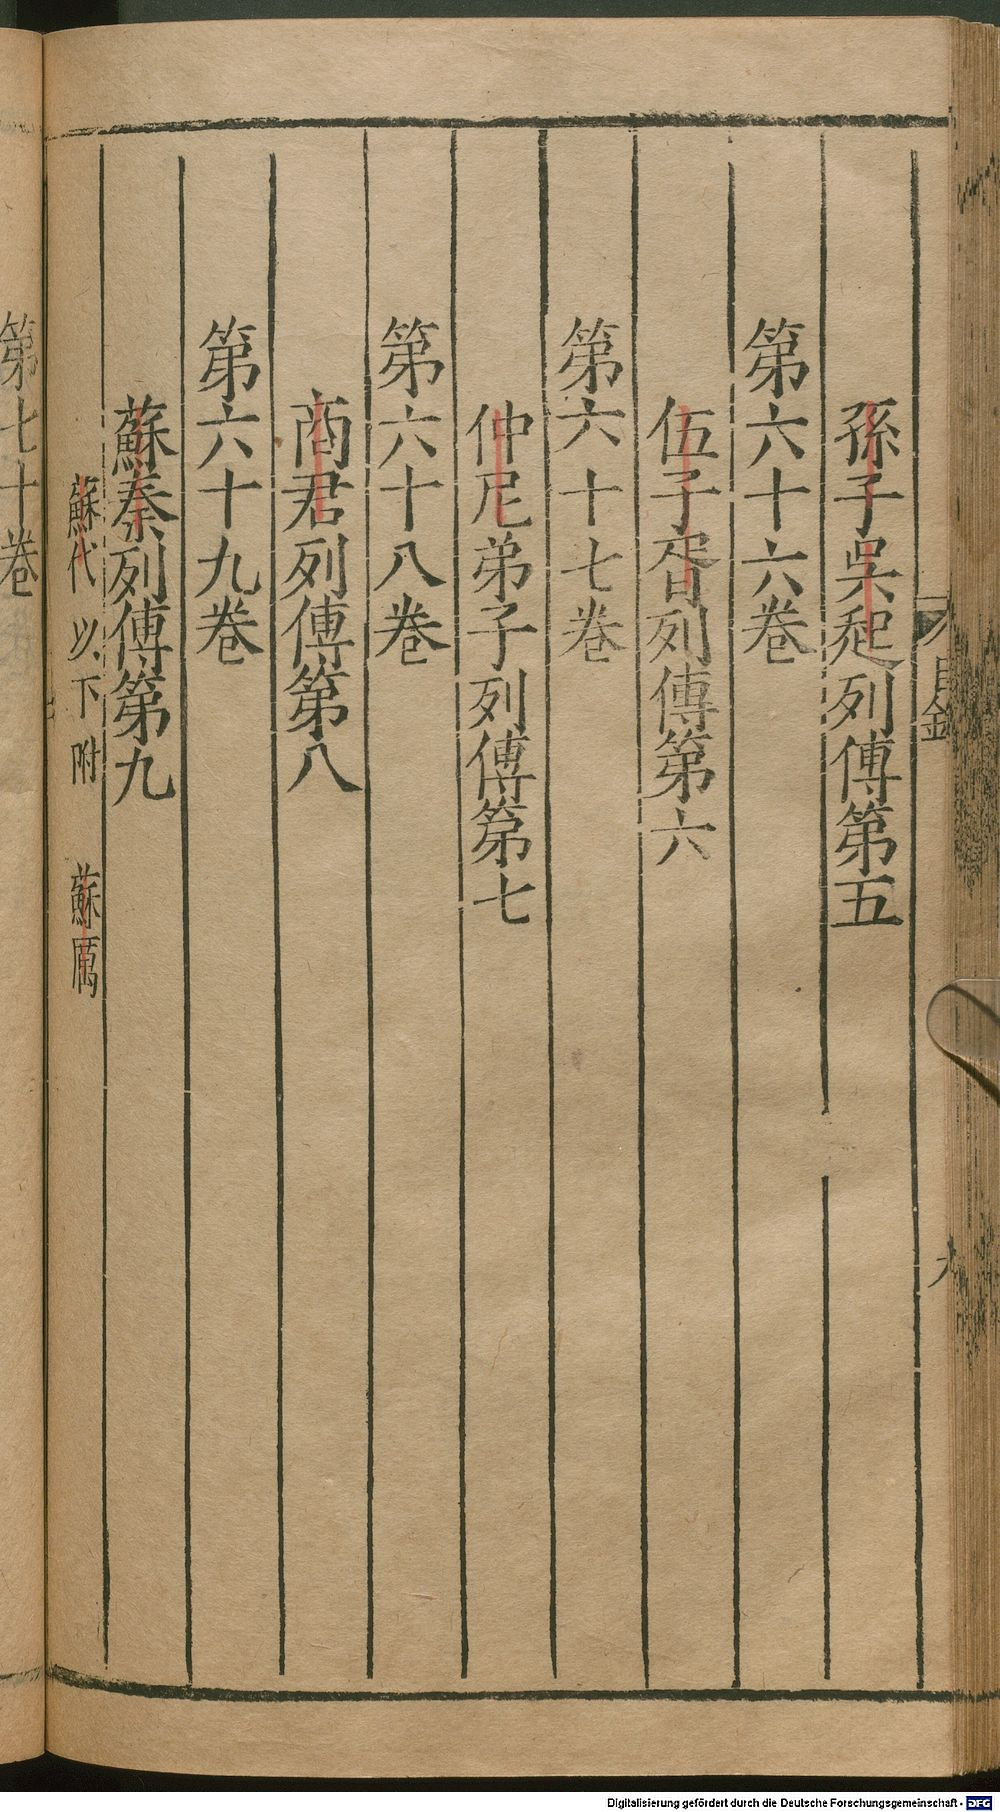 目錄
九
孫子吳起列傳第五
第六十六卷
伍子胥列傳第六
第六十七卷
仲尼弟子列傳第七
第六十八卷
商君列傳第八
第六十九卷
蘇秦列傳第九
蘇代以下附 蘇厲
第七十卷
Digitalisierung gefördert durch die Deutsche Forschungsgemeinschaft - DFG